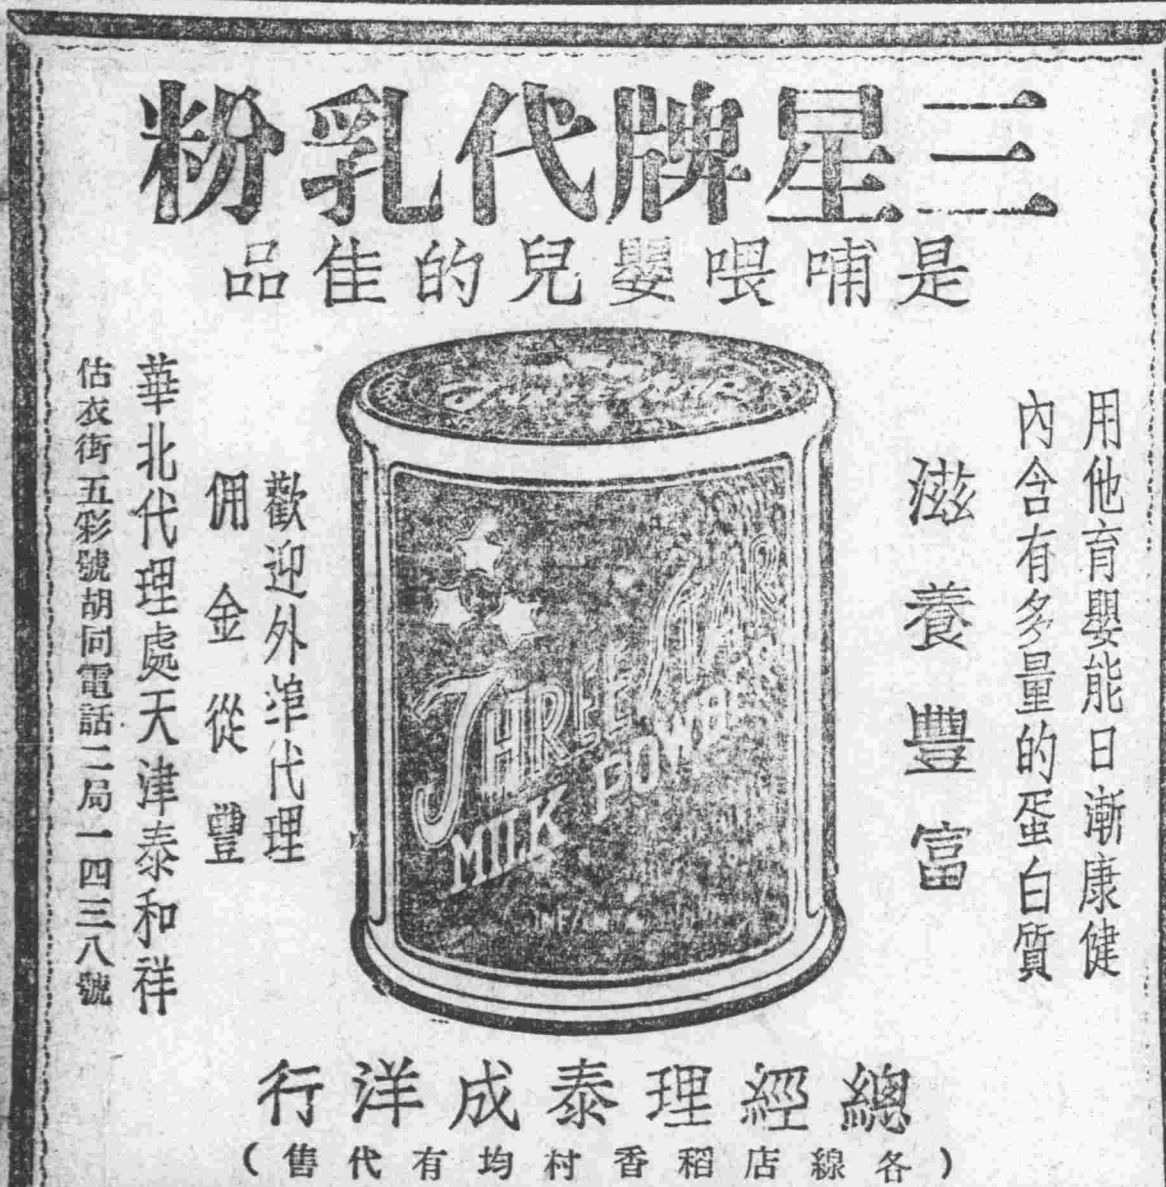 三星牌代乳粉
是哺喂嬰兒的佳品
用他育嬰能日漸康健
內含有多量的蛋白質
滋養豐富
THREE STAR
MILK POWDER
歡迎外埠代理
佣金從豐
華北代理處天津泰和祥
估衣街五彩號胡同電話二局一四三八號
總經理泰成洋行
(各線店稻香村均有代售)